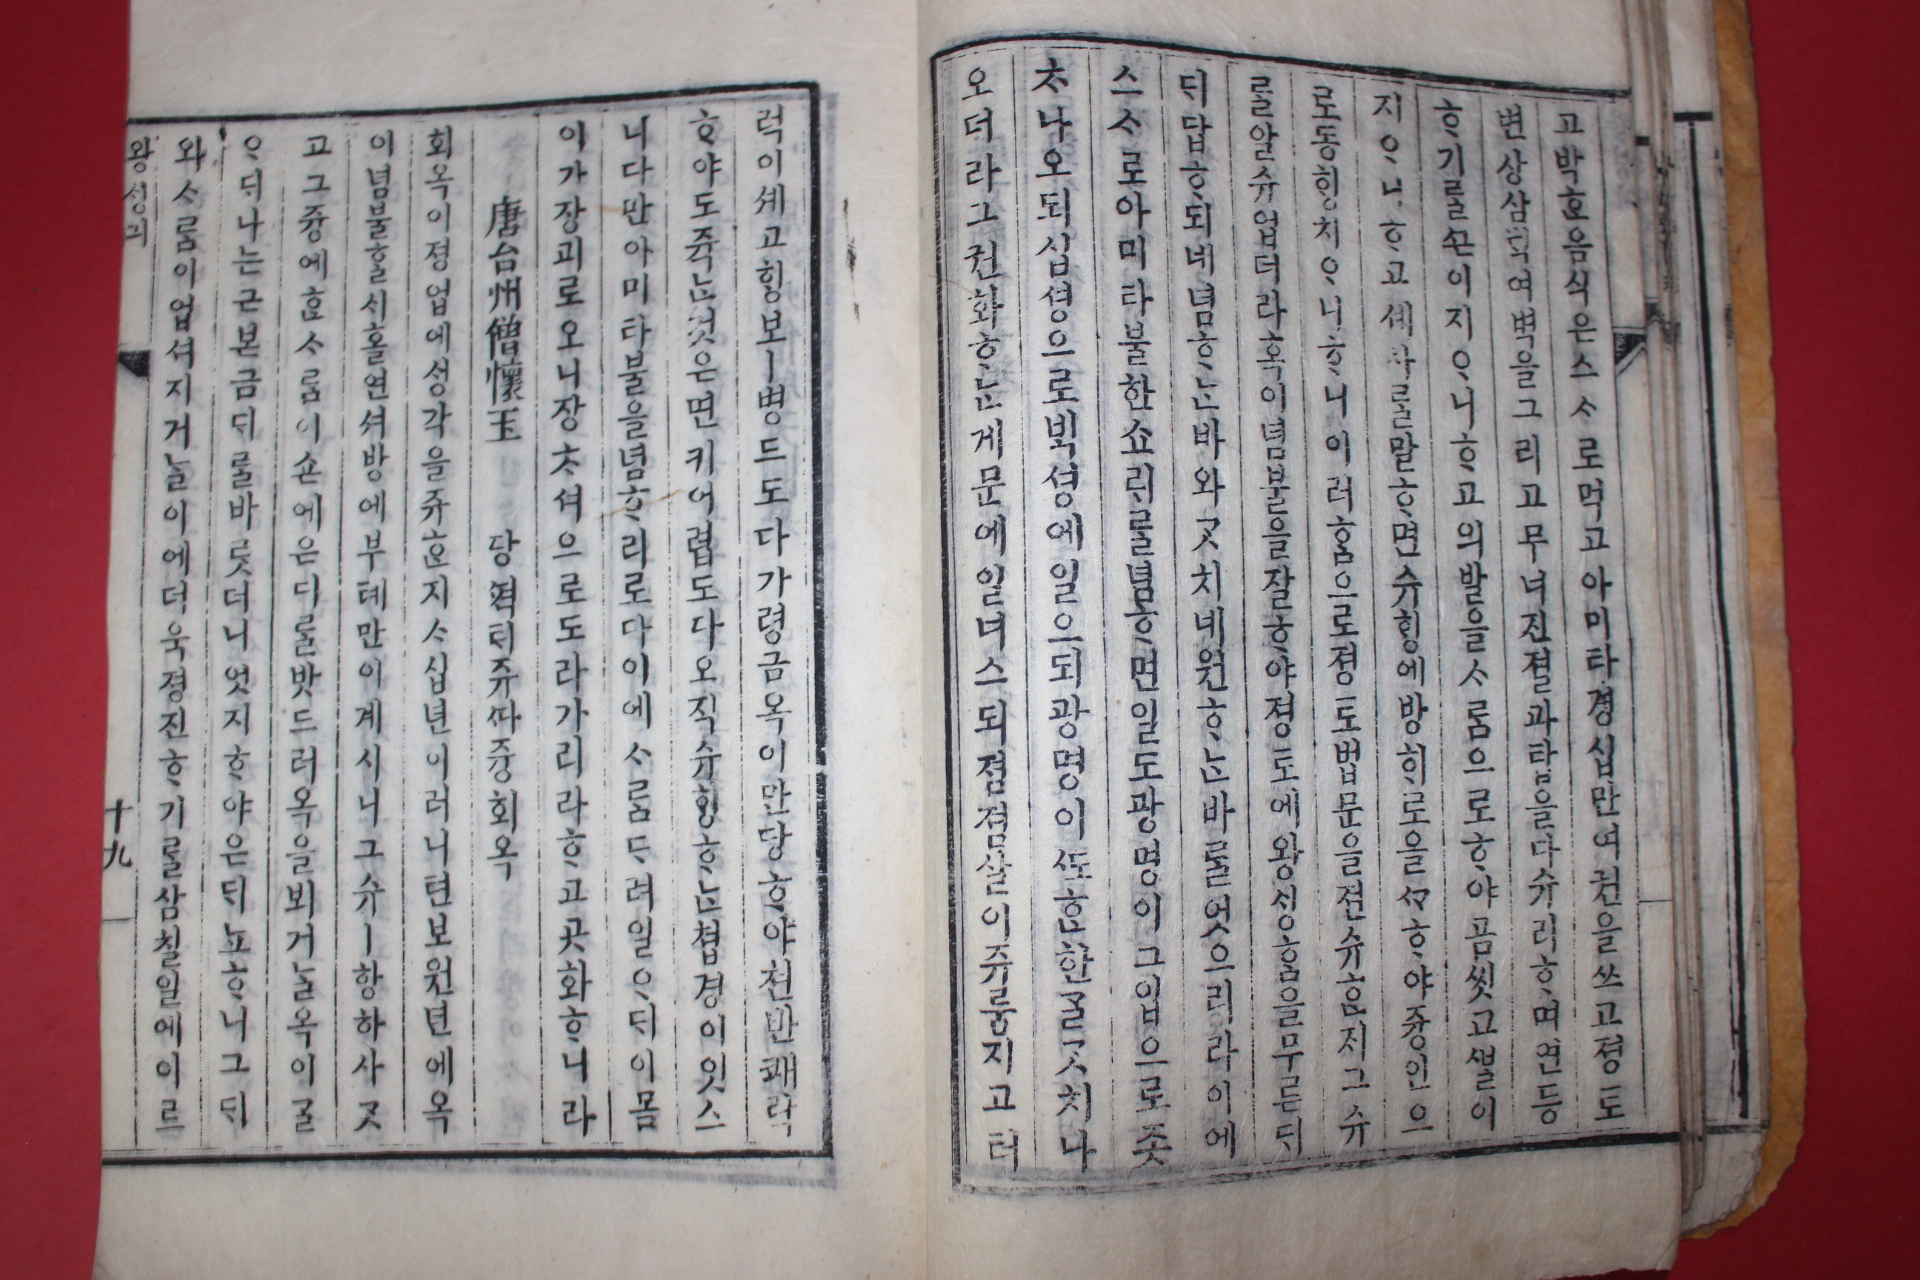 고박ᄒᆞᆫ음식은스ᄉᆞ로먹고아미타경십만여권을쓰고졍토
변상삼ᄇᆡᆨ여벽을그리고무녀진졀과탑을다슈리ᄒᆞ며연등
ᄒᆞ기ᄅᆞᆯ이지ᄋᆞ니ᄒᆞ고의발을ᄉᆞᄅᆞᆷ으로ᄒᆞ야곰씻고ᄲᆞᆯ이
지ᄋᆞ니ᄒᆞ고셰ᄅᆞᆯ말ᄒᆞ면슈ᄒᆡᆼ에방ᄒᆡ로을ᄒᆞ야즁인으
로동ᄒᆡᆼ치ᄋᆞ니ᄒᆞ니이러ᄒᆞᆷ으로졍토법문을젼슈ᄒᆞᆷ지그슈
ᄅᆞᆯ알슈업더라혹이념불을잘ᄒᆞ야졍도에왕ᄉᆡᆼᄒᆞᆷ을무른ᄃᆡ
ᄃᆡ답ᄒᆞ되네념ᄒᆞᄂᆞᆫ바와ᄀᆞᆺ치네원ᄒᆞᄂᆞᆫ바ᄅᆞᆯ엇으리라이에
스ᄉᆞ로아미타불한쇼ᄅᆡᄅᆞᆯ념ᄒᆞ면일도광명이그입으로좃
ᄎᆞ나오되십셩으로ᄇᆡᆨ셩에일으되광명이ᄯᅩᄒᆞᆫ한ᄀᆞᆯᄀᆞᆺ치나
오더라그권화ᄒᆞᄂᆞᆫ게문에일너스되졈졈살이쥬룸지고터
럭이셰고ᄒᆡᆼ보ㅣ병드도다가령금옥이만당ᄒᆞ야쳔반쾌락
ᄒᆞ야도쥭ᄂᆞᆫ것은면키어렵도다오직슈ᄒᆡᆼᄒᆞᄂᆞᆫ쳡경이잇스
니다만아미타불을념ᄒᆞ리로다이에ᄉᆞᄅᆞᆷᄃᆞ려일ᄋᆞᄃᆡ이몸
이가장괴로오니장ᄎᆞ셔으로도라가리라ᄒᆞ고곳화ᄒᆞ니라
唐台州僧懷玉　당젹ᄐᆡ쥬ᄯᅡ즁회옥
회옥이졍업에ᄉᆡᆼ각을쥬ᄒᆞᆫ지ᄉᆞ십년이러니텬보원년에옥
이념불ᄒᆞᆯᄉᆡ홀연셔방에부톄만이계시니그슈ㅣ항하사ᄀᆞᆺ
고그즁에ᄒᆞᆫᄉᆞᄅᆞᆷ이숀에은ᄃᆡᄅᆞᆯ밧드러옥을뵈거ᄂᆞᆯ옥이ᄀᆞᆯ
ᄋᆞᄃᆡ나는근본금ᄃᆡᄅᆞᆯ바랏더니엇지ᄒᆞ야은ᄃᆡ뇨ᄒᆞ니그ᄃᆡ
와ᄉᆞᄅᆞᆷ이업셔지거ᄂᆞᆯ이에더욱졍진ᄒᆞ기ᄅᆞᆯ삼칠일에이르
왕ᄉᆡᆼ
十九